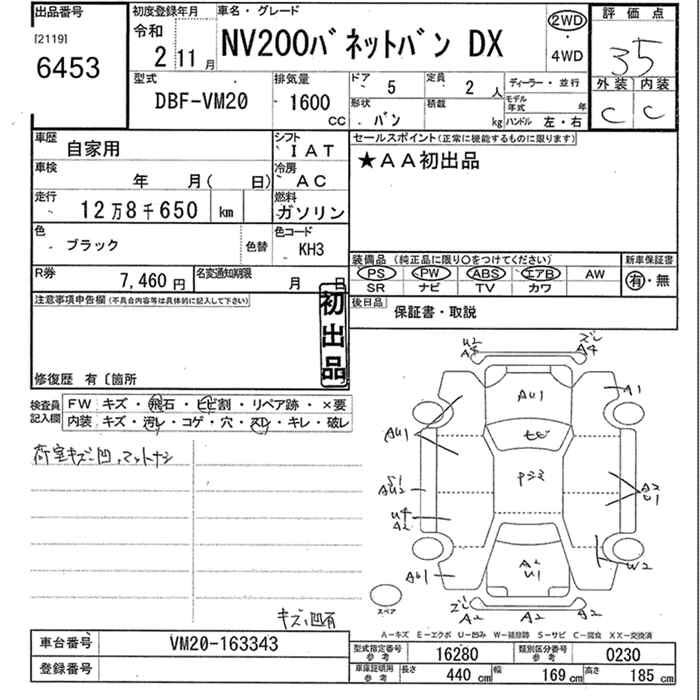 出品番号
[2119]
6453
初度登録年月
令和
2 11月
車名・グレード
NV200バネットバン DX
2WD
・
4WD
評価点
3.5
外装 内装
C C
型式
DBF-VM20
排気量
1600
CC
ドア
5
定員
2 人
形状
バン
積載
kg
ディーラー・並行
モデル年式 年
ハンドル 左・右
車歴
自家用
シフト
IAT
車検
年 月( 日)
冷房
AC
走行
12万8千650 km
燃料
ガソリン
色
ブラック
色替
色コード
KH3
R券
7,460円
名変通知期限
月 日
セールスポイント(正常に機能するものに限ります)
★AA初出品
装備品 (純正品に限り○をつけてください)
PS PW ABS エアB AW
SR ナビ TV カワ
新車保証書
有・無
後日品
保証書・取説
注意事項申告欄(不具合内容等は具体的に記入して下さい)
初出品
修復歴 有〔箇所
検査員記入欄
FW キズ・飛石・ヒビ割・リペア跡・×要
内装 キズ・汚レ・コゲ・穴・スレ・キレ・破レ
荷室キズ凹、マットナシ
キズ凹有
U2
A3
ズレ
A4
AU1
A1
AU1
ヒビ
Pシミ
S1
AU2
A2
U1
U4
A2
A2
U1
W2
AU1
スペア
ズレ
A2
A2
A2
A−キズ E−エクボ U−凹み W−補修跡 S−サビ C−腐食 XX−交換済
車台番号
VM20-163343
登録番号
型式指定番号
参考
16280
類別区分番号
参考
0230
車庫証明用
参考
長さ
440 cm
幅
169 cm
高さ
185 cm